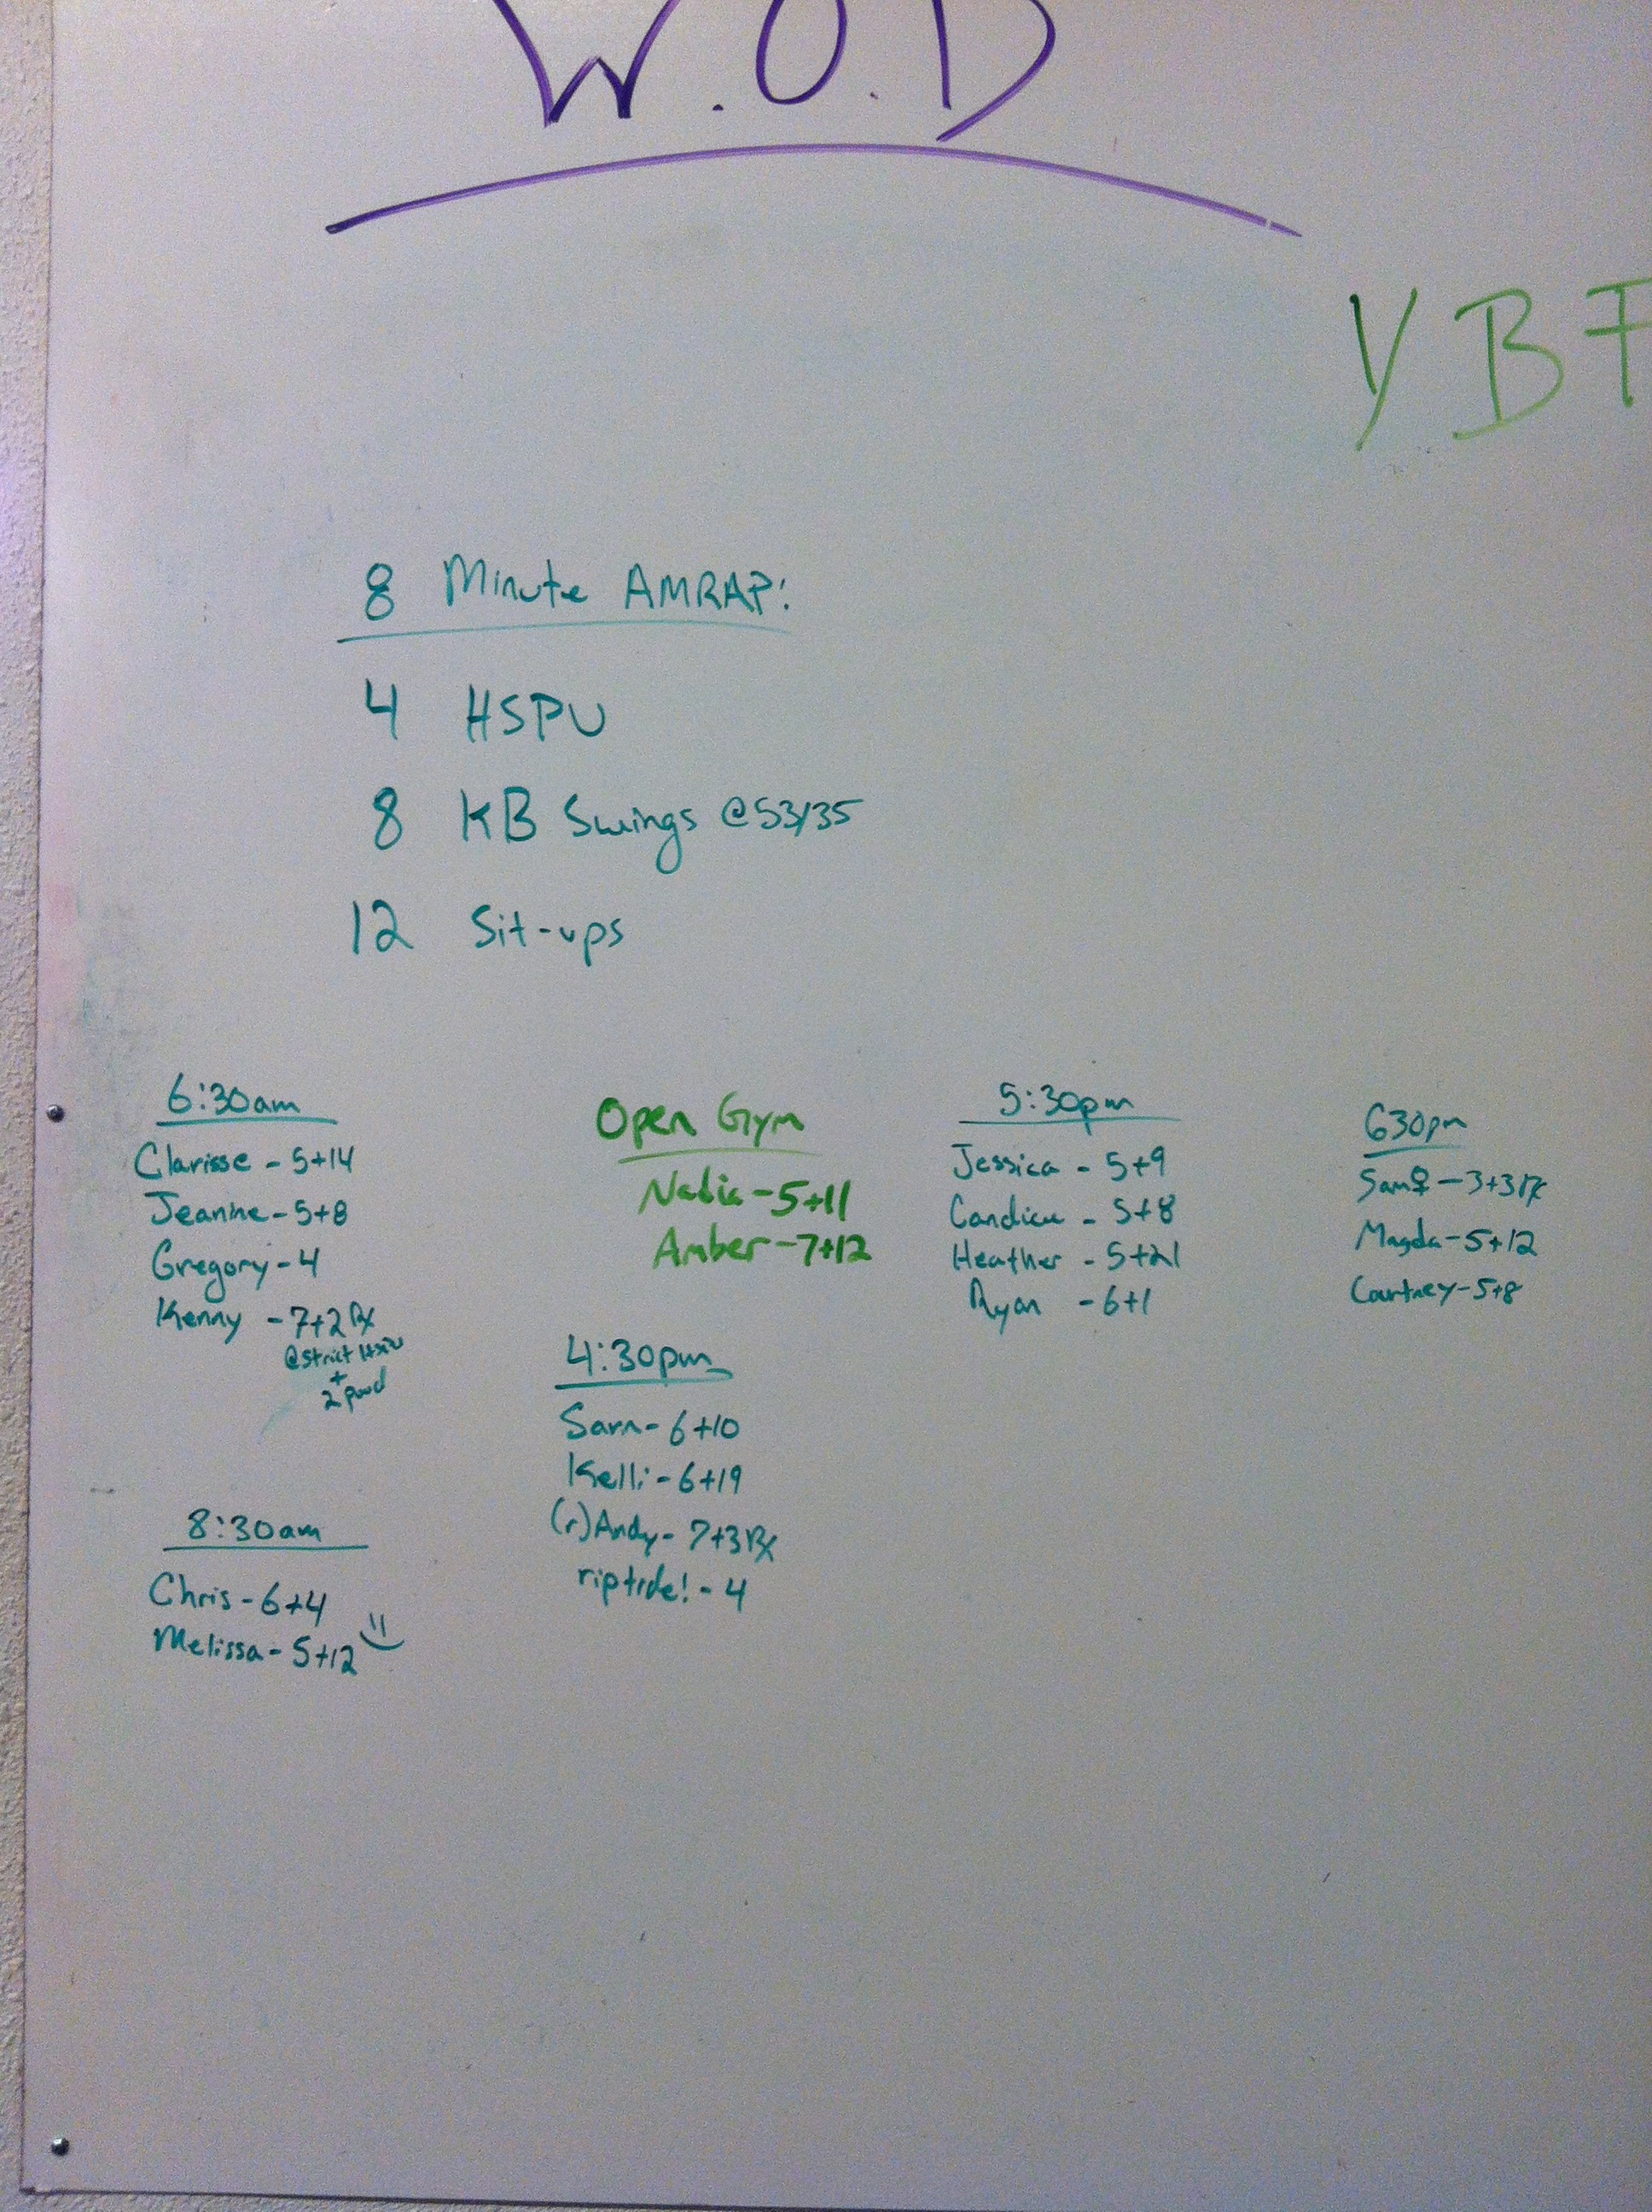 W.O.D
YBF
8 Minute AMRAP:
4 HSPU
8 KB Swings @53/35
12 Sit-ups
6:30am
Clarisse - 5+14
Jeanine - 5+8
Gregory - 4
Kenny - 7+2 Rx
@strict HSPU
+
2 pood
8:30am
Chris - 6+4
Melissa - 5+12
Open Gym
Nadia - 5+11
Amber - 7+12
4:30pm
Sam - 6+10
Kelli - 6+19
(r)Andy - 7+3 Rx
riptide! - 4
5:30pm
Jessica - 5+9
Candice - 5+8
Heather - 5+21
Ryan - 6+1
630pm
Sam♀ - 3+3 Rx
Magda - 5+12
Courtney - 5+8